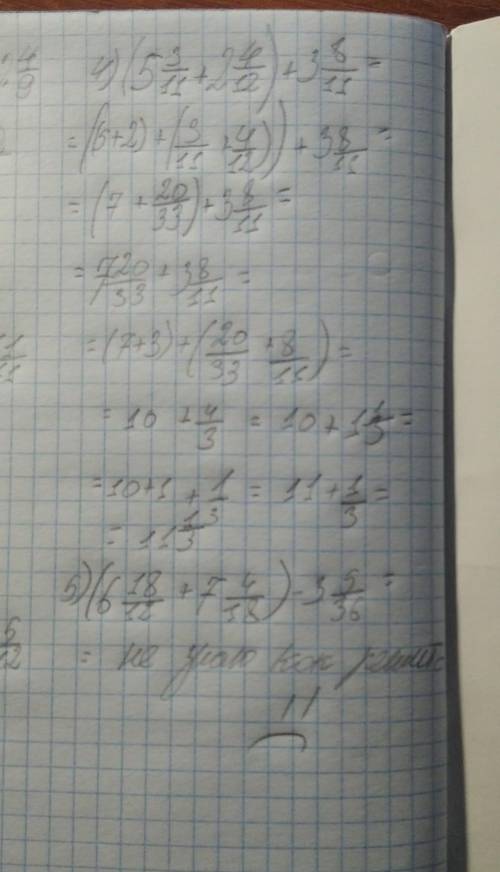 2 4/9
4) (5 3/11 + 2 4/12) + 3 8/11 =
= (5+2) + (3/11 + 4/12)) + 3 8/11 =
= (7 + 20/33) + 3 8/11 =
= 7 20/33 + 3 8/11 =
= (7+3) + (20/33 + 8/11) =
= 10 + 4/3 = 10 + 1 1/3 =
= 10+1 + 1/3 = 11 + 1/3 =
= 11 1/3
5) (6 18/12 + 7 4/18) - 3 5/36 =
= не знаю как решить